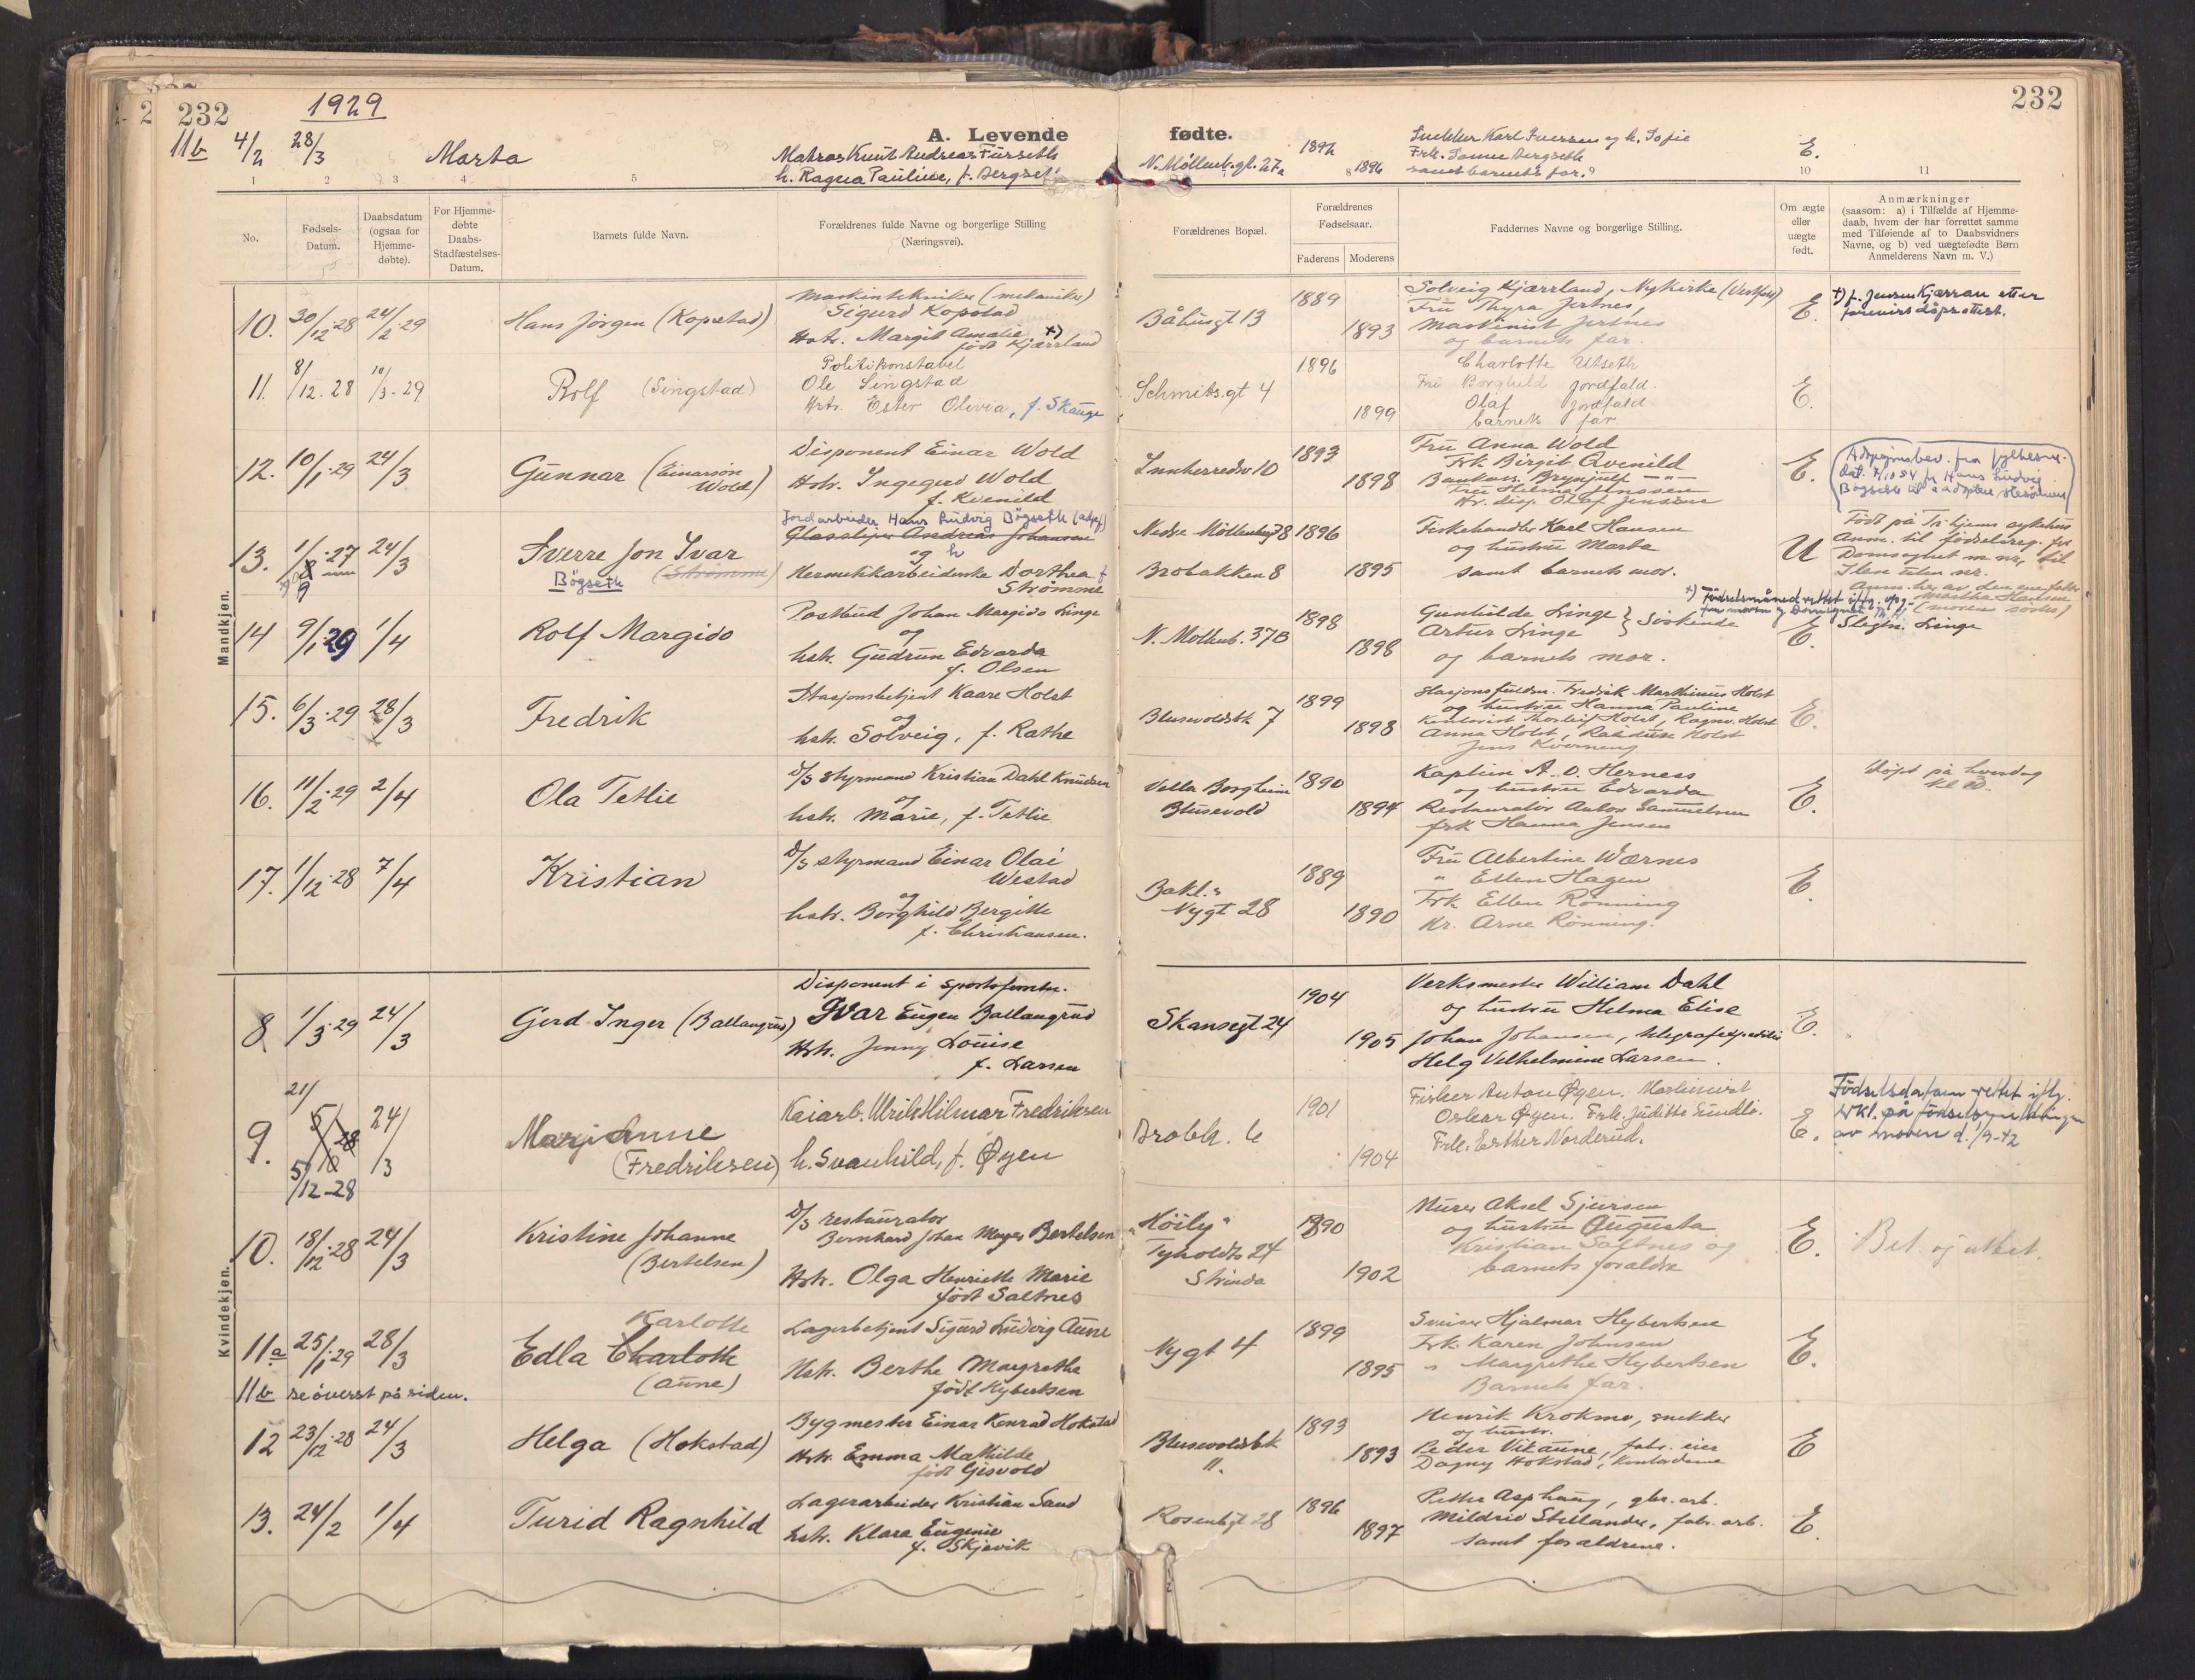 232
1929
232
A. Levende
fødte.
11b 4/2 28/3 Marta
Matros Knut Andreas Furseth
h. Ragna Pauline, f. Bergseth
N. Møllenb.gt. 27a
1892
1896
Snekker Karl Iversen og h. Sofie
Frk. Bergseth
samt barnets far.
E.
1 2 3 4 5 8 10 11
No.
Fødsels-
Datum.
Daabsdatum
(ogsaa for
Hjemme-
døbte).
For Hjemme-
døbte
Daabs-
Stadfæstelses-
Datum.
Barnets fulde Navn.
Forældrenes fulde Navne og borgerlige Stilling
(Næringsvei).
Forældrenes Bopæl.
Forældrenes
Fødselsaar.
Faderens Moderens
Faddernes Navne og borgerlige Stilling.
Om ægte
eller
uægte
født.
Anmærkninger
(saasom: a) i Tilfælde af Hjemme-
daab, hvem der har forrettet samme
med Tilføiende af to Daabsvidners
Navne, og b) ved uægtefødte Børn
Anmelderens Navn m. V.)
Mandkjøn.
10. 30/12-28 24/2-29 Hans Jörgen (Kopstad)
Maskintekniker (mekaniker)
Sigurd Kopstad
Hstr. Margit Amalie +)
født Kjærrland
Båhusgt 13
1889
1893
Solveig Kjærrland, Nykirke (Vestfold)
Fru Thyra Jertnes,
Maskinist Jertnes
og barnets far.
E.
+) f. Jensen Kjærran etter
forevist dåpsattest.
11. 8/12-28 10/3-29 Rolf (Singstad)
Politikonstabel
Ole Singstad
Hstr. Ester Olivia, f. Skauge
Schmitsgt 4
1896
1899
Charlotte Utseth
Fru Borghild Jordfald.
Olaf Jordfald
barnets far
E.
12. 10/1-29 24/3 Gunnar (Einarsön
Wold)
Disponent Einar Wold
Hstr. Ingegerd Wold
f. Kvenild
Innherredsv 10
1893
1898
Fru Anna Wold
Frk. Birgit Qvenild
Bankass. Brynjulf -"-
Fru Helma Jenssen
Hr. disp. Olaf Jenssen
E.
Adopsjonsbev. fra fylkesm.
dat. 7/10 54 for Hans Ludvig
Bøgseth til å adoptere stesønnen
13. 1/8-27 24/3 Sverre Jon Ivar
9
(Strömme)
Bögseth
Jordarbeider Hans Ludvig Bögseth (adpf)
Glassliper Andreas Johansen
og h
Hermetikarbeiderske Dorthea f
Strömme
Nedre Möllenberg 78
Brobakken 8
1896
1895
Fiskehandler Karl Hansen
og hustru Marta
samt barnets mor.
U
Født på Tr.hjems sykehus
Anm. til födselsreg. for
Domsognet m nr, til
Ilen uten nr.
Anm. her av den ene fadder
Martha Hansen
(morens søster)
x) Födselsmåned rettet iflg. opg.
fra moren og Domsognet
14 9/1 29 1/4 Rolf Margido
Postbud Johan Margido Linge
og
hstr. Gudrun Edvarda
f. Olsen
N. Mollenb. 37B
1898
1898
Gunhilde Linge } Søskende
Artur Linge
og barnets mor.
E.
Slegtn. Linge
15. 6/3-29 28/3 Fredrik
Stasjonsbetjent Kaare Holst
og
hstr. Solveig, f. Rathe
Blusevoldsbk 7
1899
1898
Stasjonsfuldm. Fredrik Marthinus Holst
og hustru Hanna Pauline
Kontorist Thorleif Holst, Ragnv. Holst
Anna Holst, Holst
Jens Kverneng
E.
16. 11/2-29 2/4 Ola Tetlie
D/S styrmand Kristian Dahl Knudsen
og
hstr. Marie, f. Tetlie
Villa Borgheim
Blusevold
1890
1894
Kaptein A. O. Herness
og hustru Edvarda
Restauratör Anton Samuelsen
frk Hanna Jensen
E.
Døpt på hverdag
17. 1/12-28 7/4 Kristian
D/S styrmand Einar Olai
Westad
og
hstr. Borghild Bergitte
f. Christiansen.
Bakl.
Nygt 28
1889
1890
Fru Albertine Wærnes
" Ellen Hagen
Frk Ellen Rönning
Hr. Arne Rönning.
E.
Kvindekjøn.
8. 1/3-29 24/3 Gerd Inger (Ballangrud)
Disponent i sportsforretn.
Ivar Eugen Ballangrud
Hstr. Jenny Louise
f. Larsen
Skansegt 24
1904
1905
Verksmester William Dahl
og hustru Helma Elise
Johan Johansen, telegrafexpeditör
Helg Vilhelmine Larsen.
E.
9. 21/
5/12-28 24/3 Marianne
(Fredriksen)
Kaiarb. Ulrik Hilmar Fredriksen
h. Svanhild, f. Øyen
Brobk. 6
1901
1904
Fisker Anton Øyen. Maskinist
Oskar Øyen. Frk. Juditte Lindli.
Frk. Esther Norderud.
E.
Födselsdatum rettet iflg.
erkl. på födselsmeldingen
av moren d. 1/9-42
10. 18/12-28 24/3 Kristine Johanne
(Bertelsen)
D/S restauratör
Bernhard Johan Meyer Bertelsen
Hstr. Olga Henriette Marie
født Saltnes
"Höily"
Tyholdtv 24
Strinda
1890
1902
Murer Aksel Sjursen
og hustru Augusta
Kristian Saltnes og
barnets foraldre
E.
Bet. og uttat.
11a 25/1-29 28/3 Edla Charlotte
Karlotte
(Aune)
Lagerbetjent Sigurd Ludvig Aune
Hstr. Berthe Margrethe
født Hybertsen
Nygt 4
1899
1895
Sveiser Hjalmar Hybertsen
Frk. Karen Johnsen
" Margrethe Hybertsen
Barnets far.
E.
11b se överst på siden.
12 23/12-28 24/3 Helga (Hokstad)
Bygmester Einar Konrad Hokstad
Hstr. Emma Mathilde
født Gisvold
Blusevoldsbk
".
1893
1893
Henrik Krokmo, snekker
og hustr.
Peder Vikaune, fabr. eier
Dagny Hokstad, Kontordame
E
13. 24/2 1/4 Turid Ragnhild
Lagerarbeider Kristian Sand
hstr. Klara Eugenie
f. Skjevik
Rosenbgt 28
1896
1897
Petter Asphaug, gbr. arb.
Mildrid Stillander, fabr. arb.
samt foraldrene.
E.